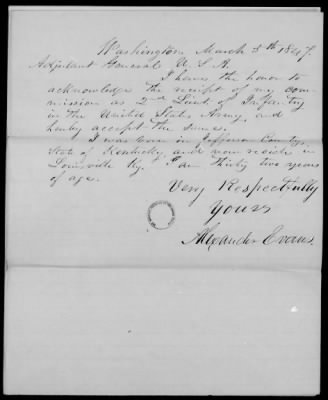 Washington March 5th 1847.
Adjutant General U. S. A.
I have the honor to
acknowledge the receipt of my com-
mission as 2nd Lieut. of Infantry
in the United States Army, and
hereby accept the same.
I was born in Jefferson County,
State of Kentucky, and now reside in
Louisville Ky. I am thirty two years
of age.
Very Respectfully
Yours
Alexander Evans.